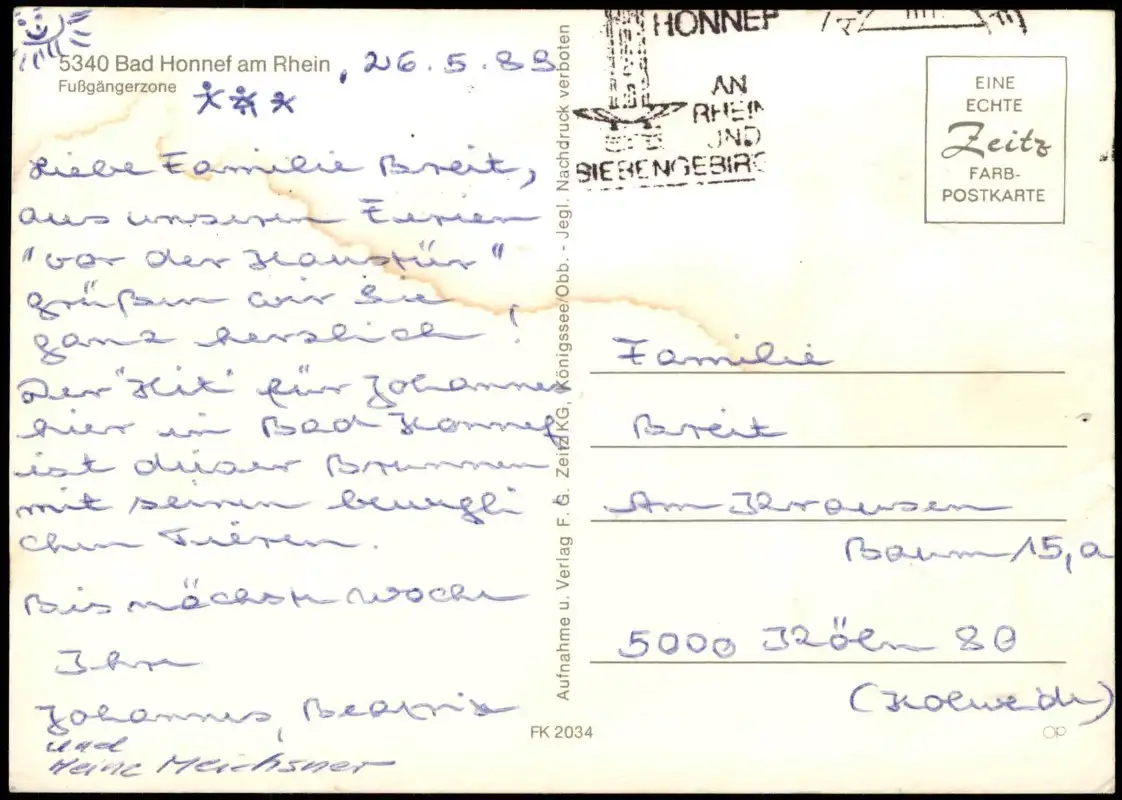 5340 Bad Honnef am Rhein, 26.5.89
Fußgängerzone
Liebe Familie Breit,
aus unseren Ferien
"vor der Haustür"
grüßen wir Sie
ganz herzlich!
Der "Hit" für Johannes
hier in Bad Honnef
ist dieser Brunnen
mit seinen bewegli
chen Tieren.
Bis nächste Woche
Ihre
Johannes, Beatrix
und
Heinz Meichsner
Aufnahme u. Verlag F. G. Zeitz KG, Königssee/Obb. - Jegl. Nachdruck verboten
FK 2034
HONNEF
AN
RHEIN
UND
SIEBENGEBIRG
EINE
ECHTE
Zeitz
FARB-
POSTKARTE
Familie
Breit
Am Krausen
Baum 15, a
5000 Köln 80
(Holweide)